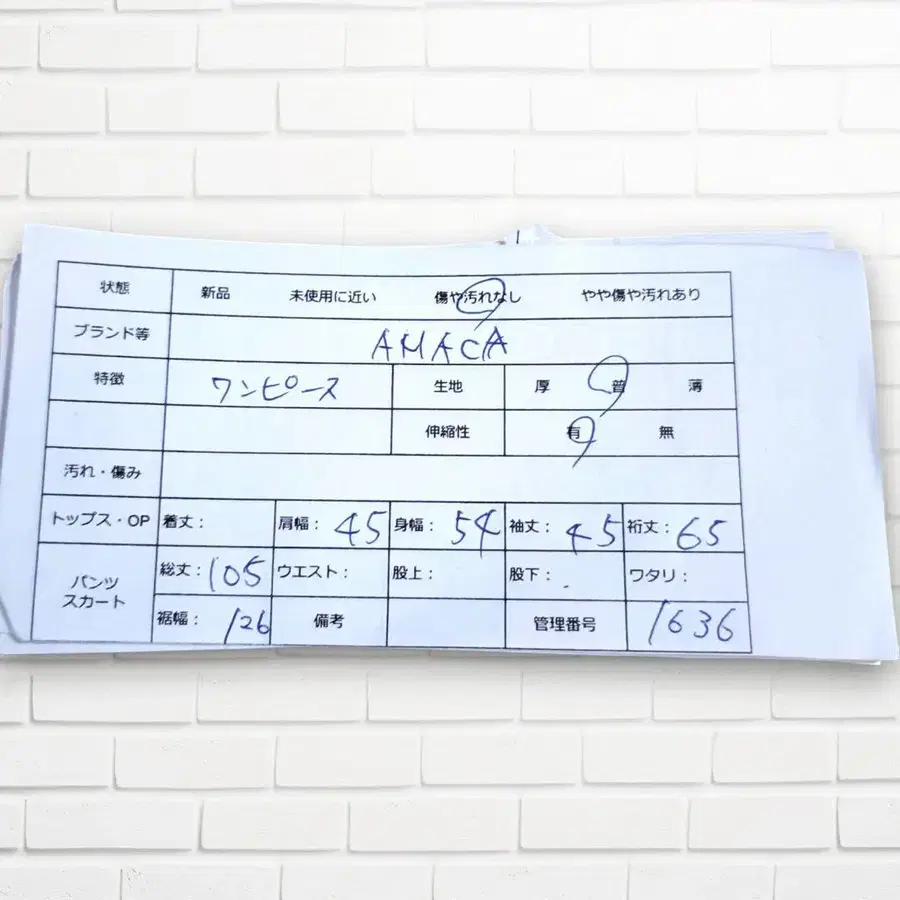 状態 新品 未使用に近い 傷や汚れなし やや傷や汚れあり
ブランド等 AMACA
特徴 ワンピース 生地 厚 普 薄
伸縮性 有 無
汚れ・傷み
トップス・OP 着丈: 肩幅: 45 身幅: 54 袖丈: 45 裄丈: 65
パンツ スカート 総丈: 105 ウエスト: 股上: 股下: ワタリ:
裾幅: 126 備考 管理番号 1636